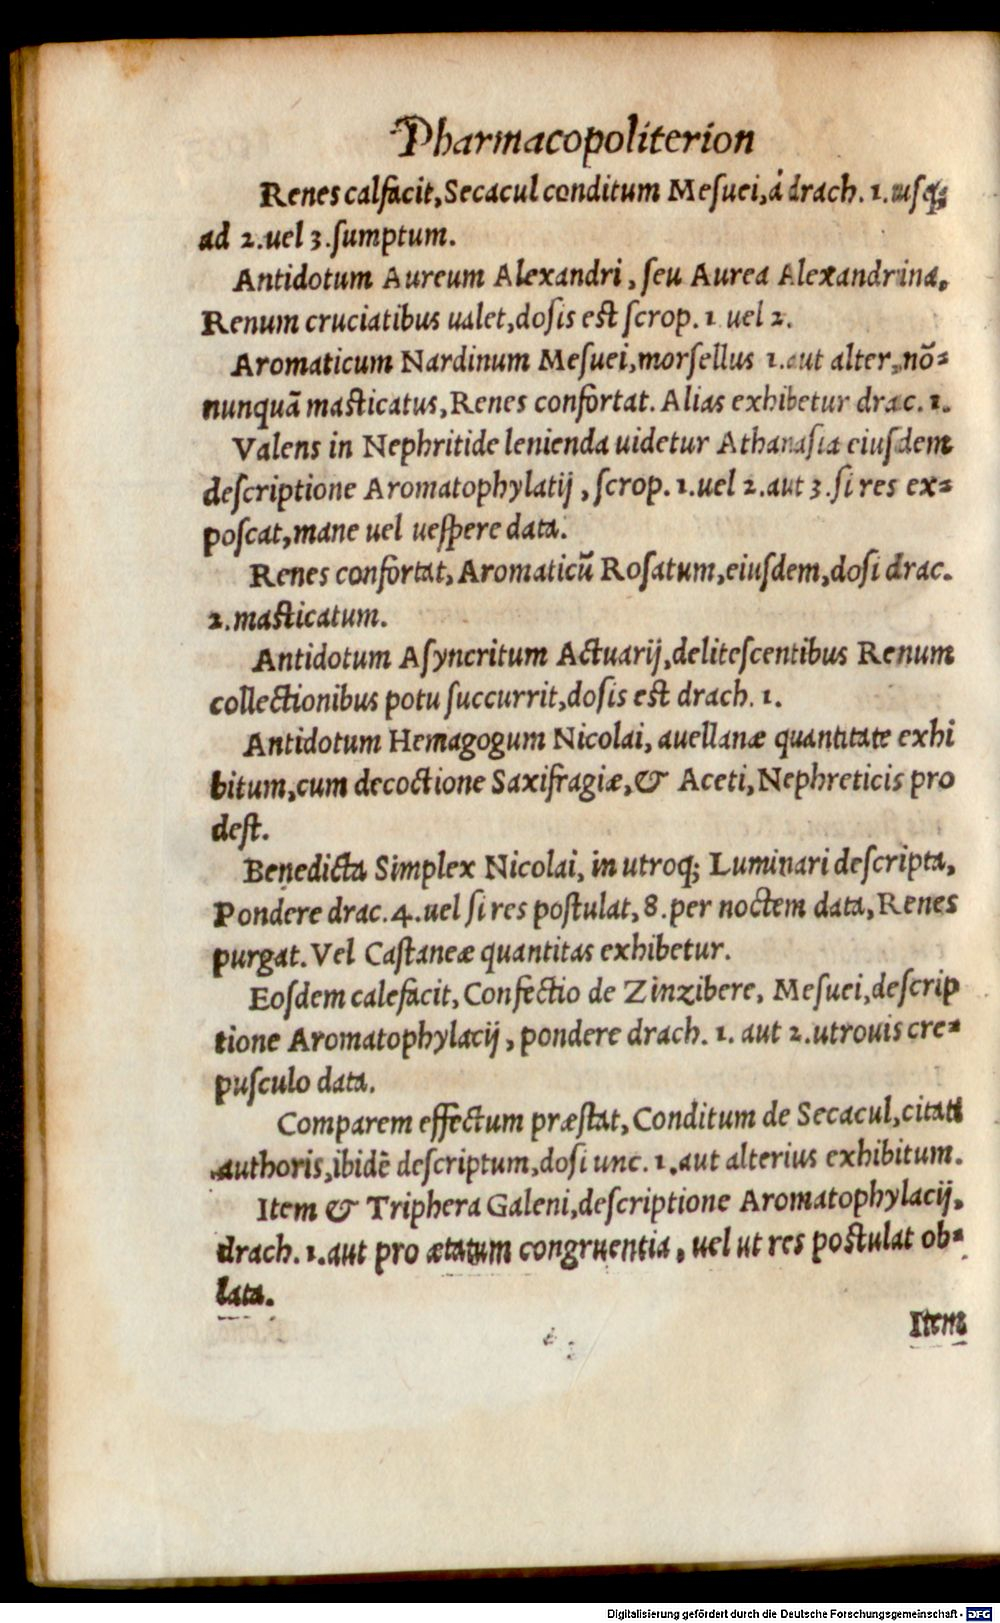 Pharmacopoliterion
Renes calfacit, Secacul conditum Mesuei, á drach. 1. usq;
ad 2. uel 3. sumptum.
Antidotum Aureum Alexandri, seu Aurea Alexandrina,
Renum cruciatibus ualet, dosis est scrop. 1 uel 2.
Aromaticum Nardinum Mesuei, morsellus 1. aut alter, nō=
nunquā masticatus, Renes confortat. Alias exhibetur drac. 1.
Valens in Nephritide lenienda uidetur Athanasia eiusdem
descriptione Aromatophylatij, scrop. 1. uel 2. aut 3. si res ex=
poscat, mane uel uespere data.
Renes confortat, Aromaticū Rosatum, eiusdem, dosi drac.
2. masticatum.
Antidotum Asyncritum Actuarij, delitescentibus Renum
collectionibus potu succurrit, dosis est drach. 1.
Antidotum Hemagogum Nicolai, auellanæ quantitate exhi
bitum, cum decoctione Saxifragiæ, & Aceti, Nephreticis pro
dest.
Benedicta Simplex Nicolai, in utroq; Luminari descripta,
Pondere drac. 4. uel si res postulat, 8. per noctem data, Renes
purgat. Vel Castaneæ quantitas exhibetur.
Eosdem calefacit, Confectio de Zinzibere, Mesuei, descrip
tione Aromatophylacij, pondere drach. 1. aut 2. utrouis cre=
pusculo data.
Comparem effectum præstat, Conditum de Secacul, citati
authoris, ibidē descriptum, dosi unc. 1. aut alterius exhibitum.
Item & Triphera Galeni, descriptione Aromatophylacij,
drach. 1. aut pro ætatum congruentia, uel ut res postulat ob=
lata.
Item
Digitalisierung gefördert durch die Deutsche Forschungsgemeinschaft - DFG